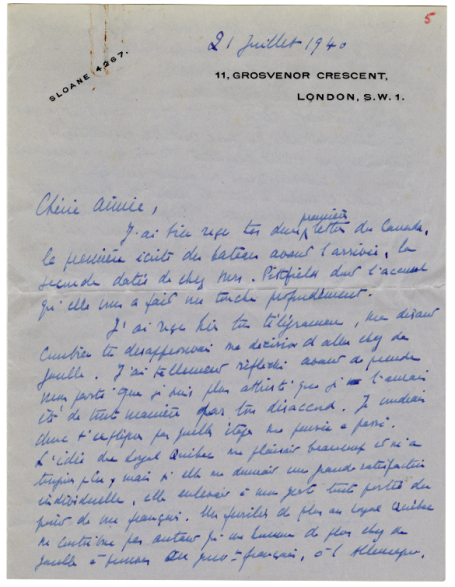 5
21 Juillet 1940
SLOANE 4267.
11, GROSVENOR CRESCENT,
LONDON, S.W.1.
Chérie Aimée,
J'ai bien reçu tes deux premières lettres du Canada,
la première écrite du bateau avant l'arrivée, la
seconde datée de chez Mrs. dont l'accueil
qu'elle vous a fait me touche profondément.
J'ai reçu hier ton télégramme, me disant
combien tu désapprouvais ma décision d'aller chez de
Gaulle. J'ai tellement réfléchi avant de prendre
mon parti que je suis plus attristé que je l'aurais
été de toute manière par ton désaccord. Je voudrais
donc t'expliquer par quelles étapes ma pensée a passé.
L'idée du Royal Québec me plaisait beaucoup et m'a
toujours plu, mais si elle me donnait une grande satisfaction
individuelle, elle enlevait à mon geste toute portée du
point de vue français. Un fusilier de plus au Royal Québec
ne contribue pas autant qu'un homme de plus chez de
Gaulle à un français, à l'Allemagne,